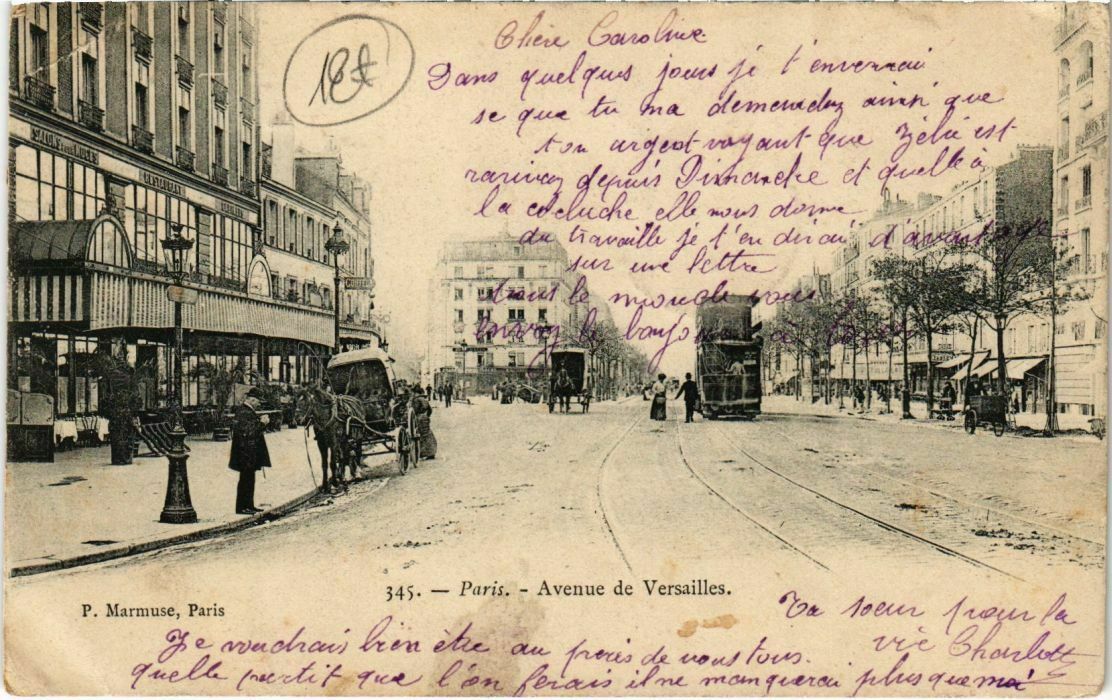 18t
Chère Caroline
Dans quelques jours je t'enverrai
se que tu ma demandez ainsi que
ton argent voyant que Zélie est
depuis Dimanche et quelle à
la coluche elle nous donne
du travaille je t'en dirai d'avantage
sur une lettre
tous le monde vous
envoy le bonjour à
SALONS POUR NOCES
RESTAURANT
345. — Paris. - Avenue de Versailles.
P. Marmuse, Paris
Ta sœur pour la
vie Charlotte
Je voudrais bien être au près de vous tous.
quelle partit que l'on ferais il ne manquerai plus que moi